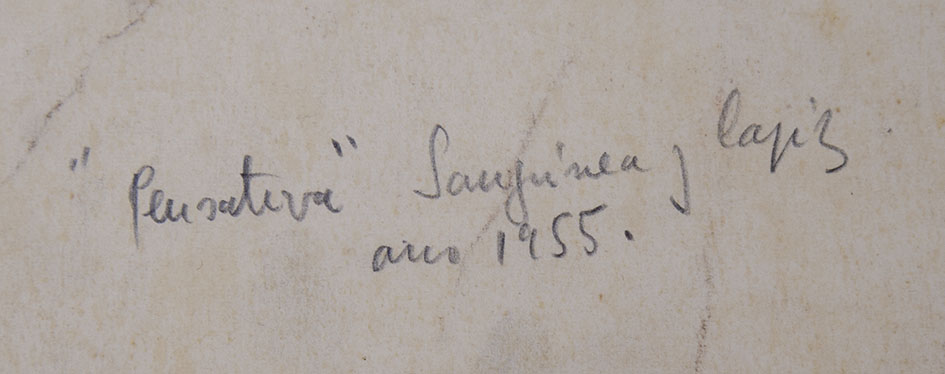 "Pensativa" Sanguínea y lapiz
ano 1955.